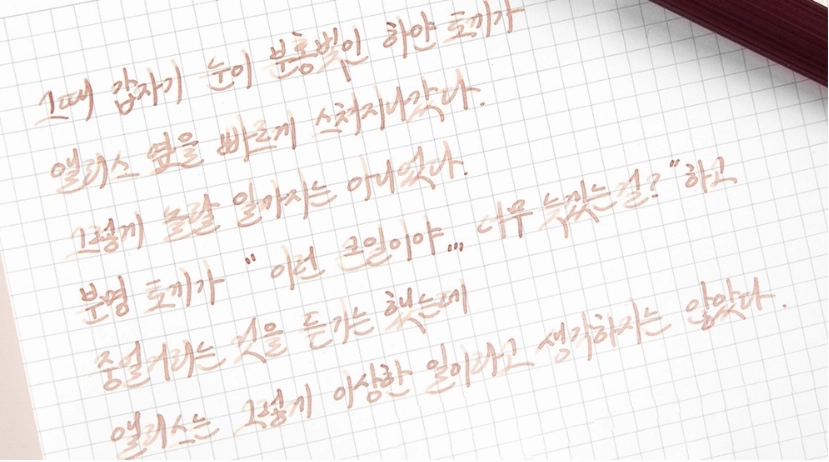 그때 갑자기 눈이 분홍빛인 하얀 토끼가
앨리스 옆을 빠르게 스쳐지나갔다.
그렇게 놀랄 일까지는 아니었다.
분명 토끼가 “이런 큰일이야... 너무 늦겠는걸?” 하고
중얼거리는 것을 듣기는 했는데
앨리스는 그렇게 이상한 일이라고 생각하지는 않았다.